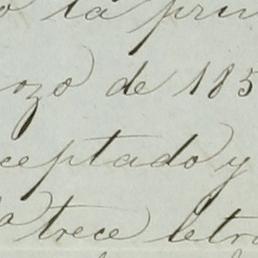 o la pri
ozo de 185
ceptado y
trece letra